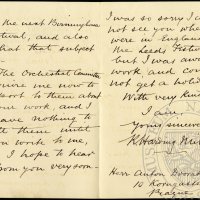 the next Birmingham
tival, and also
hat that subject
The Orchestral Committee
quire me now to
port to them about
our work, and I
ave nothing to
ll them until
ou work to me,
I hope to hear
rom you very soon
I was so sorry I did
not see you when
were in England
the Leeds Festi
but I was awa
work and cou
not get a holid
With very kin
I am
yours sincere
R Harding Mil
Herr Anton Dvorak
10 Korngasse
Prague